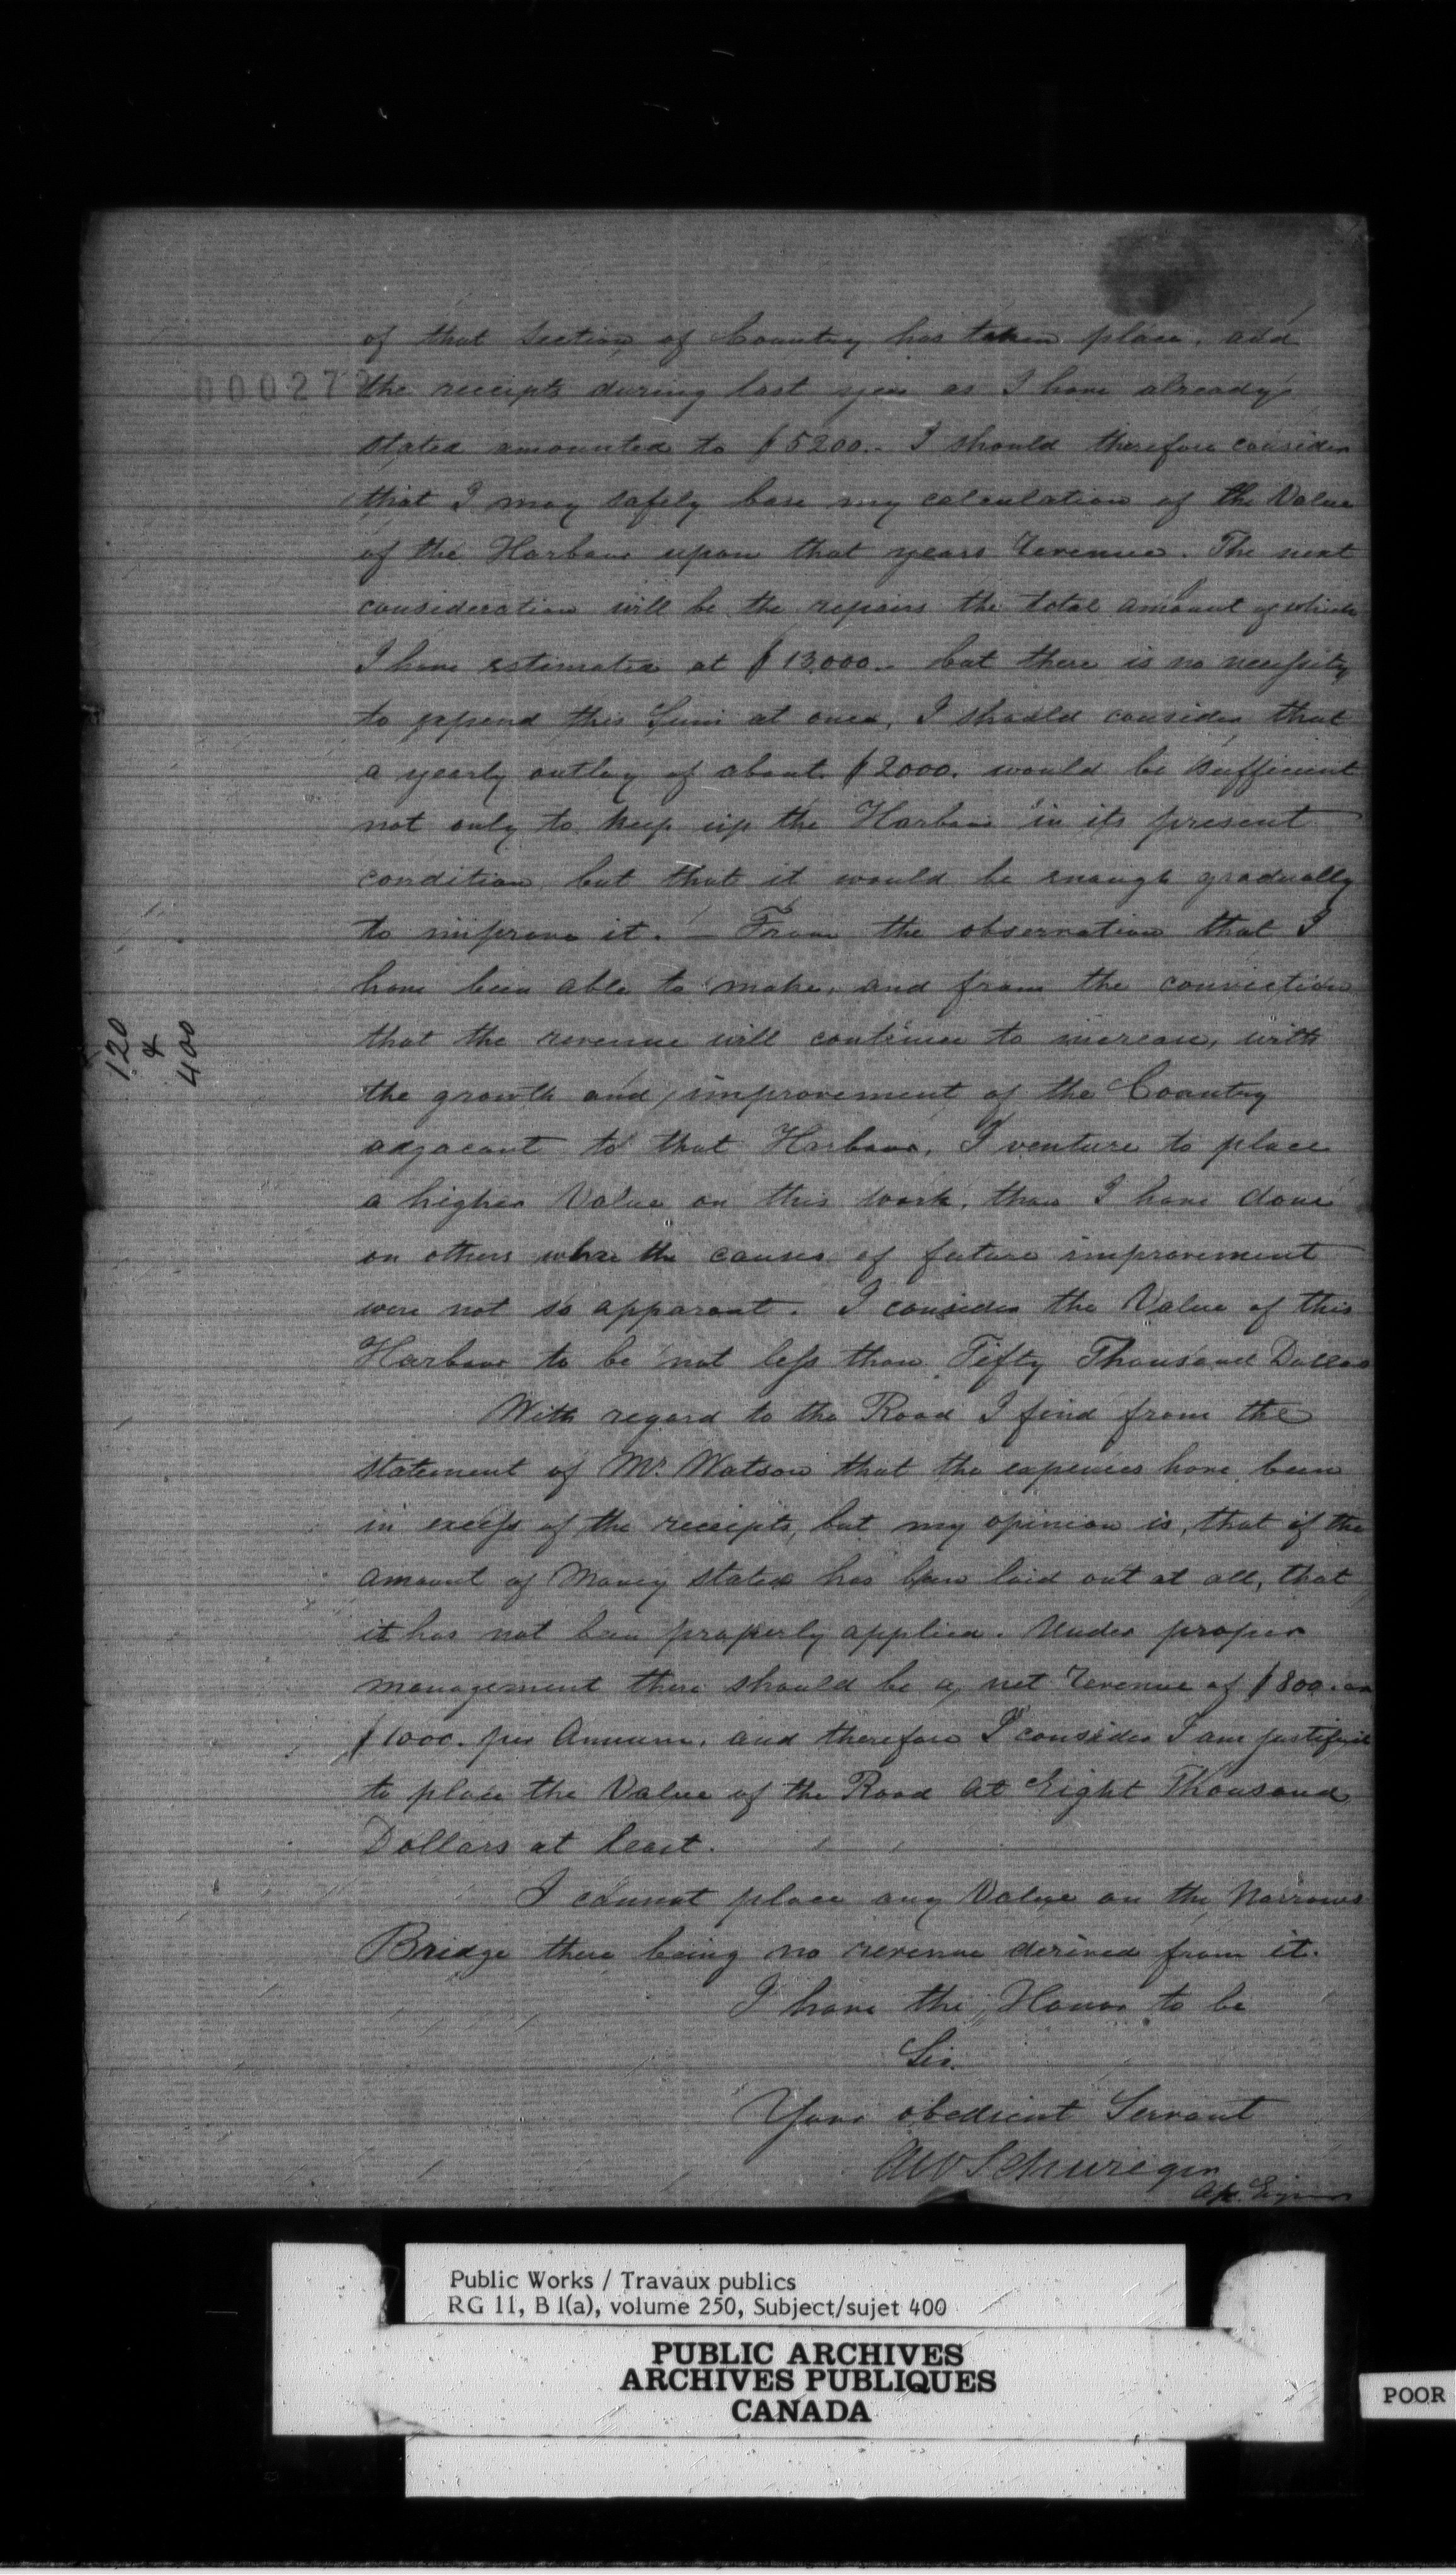 of that Section of Country has taken place. and
00027
the receipts during last year as I have already
stated amounted to $5200.- I should therefore consider
that I may safely base my calculation of the Value
of the Harbour upon that years revenue. The next
consideration will be the repairs the total amount of which
I have estimated at $13.000.- but there is no necessity
to expend this Sum at once, I should consider that
a yearly outlay of about $2000. would be sufficient
not only to keep up the Harbour in its present
condition, but that it would be enough gradually
to improve it. — From the observation that I
have been able to make, and from the conviction
that the revenue will continue to increase, with
120
&
400
the growth and improvement of the Country
adjacent to that Harbour, I venture to place
a higher Value on this work, than I have done
on others where the causes of future improvement
were not so apparent. I consider the Value of this
Harbour to be not less than Fifty Thousand Dollars
With regard to the Road I find from the
statement of Mr. Watson that the expenses have been
in excess of the receipts, but my opinion is, that if the
amount of Money stated has been laid out at all, that
it has not been properly applied. Under proper
management there should be a net revenue of $800. or
$1000. per Annum, and therefore I consider I am justified
to place the Value of the Road at Eight Thousand
Dollars at least.
I cannot place any Value on the Narrows
Bridge there being no revenue derived from it.
I have the Honor to be
Sir.
Your obedient Servant
AW Schwiegen
Public Works / Travaux publics
RG 11, B 1(a), volume 250, Subject/sujet 400
PUBLIC ARCHIVES
ARCHIVES PUBLIQUES
CANADA
POOR